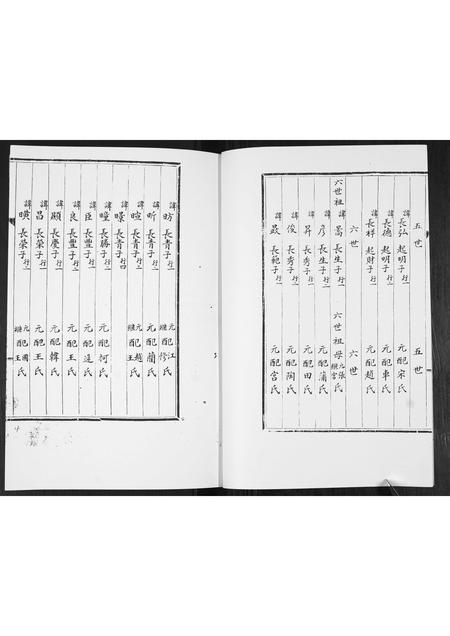 五世 五世
諱長弘 起明子行一 元配宋氏
諱長德 起明子行二 元配車氏
諱長祥 起財子行一 元配趙氏
六世 六世
六世祖諱暠 長生子行一 六世祖母元張繼宮氏
諱彥 長生子行二 元配蒲氏
諱昇 長秀子行一 元配田氏
諱俊 長秀子行二 元配陶氏
諱晸 長範子行一 元配宮氏
諱昉 長青子行一 元配江 繼配穆氏
諱昕 長青子行二 元配蘭氏
諱暄 長青子行三 元配趙 繼配王氏
諱曚 長青子行四
諱曈 長勝子行一 元配柯氏
諱臣 長豐子行一 元配逄氏
諱良 長豐子行二 元配王氏
諱顯 長慶子行一 元配韓氏
諱昌 長榮子行一 元配王氏
諱曠 長榮子行二 元配 繼配王氏